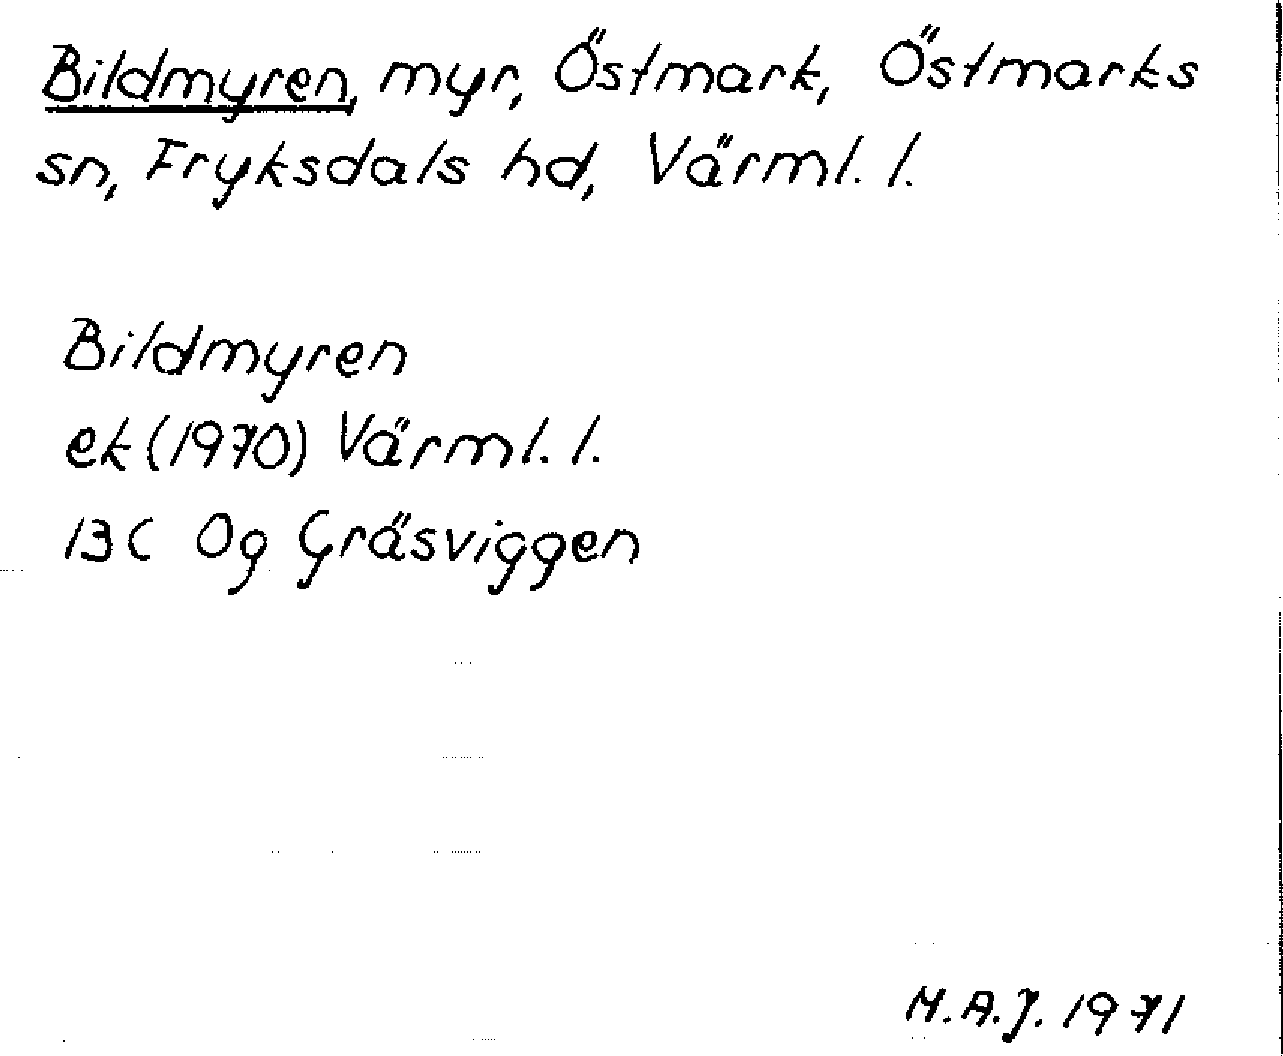 Bildmyren, myr, Östmark, Östmarks
sn, Fryksdals hd, Värml. l.
Bildmyren
ek (1970) Värml. l.
13C 0g Gräsviggen
M.A.J. 1971